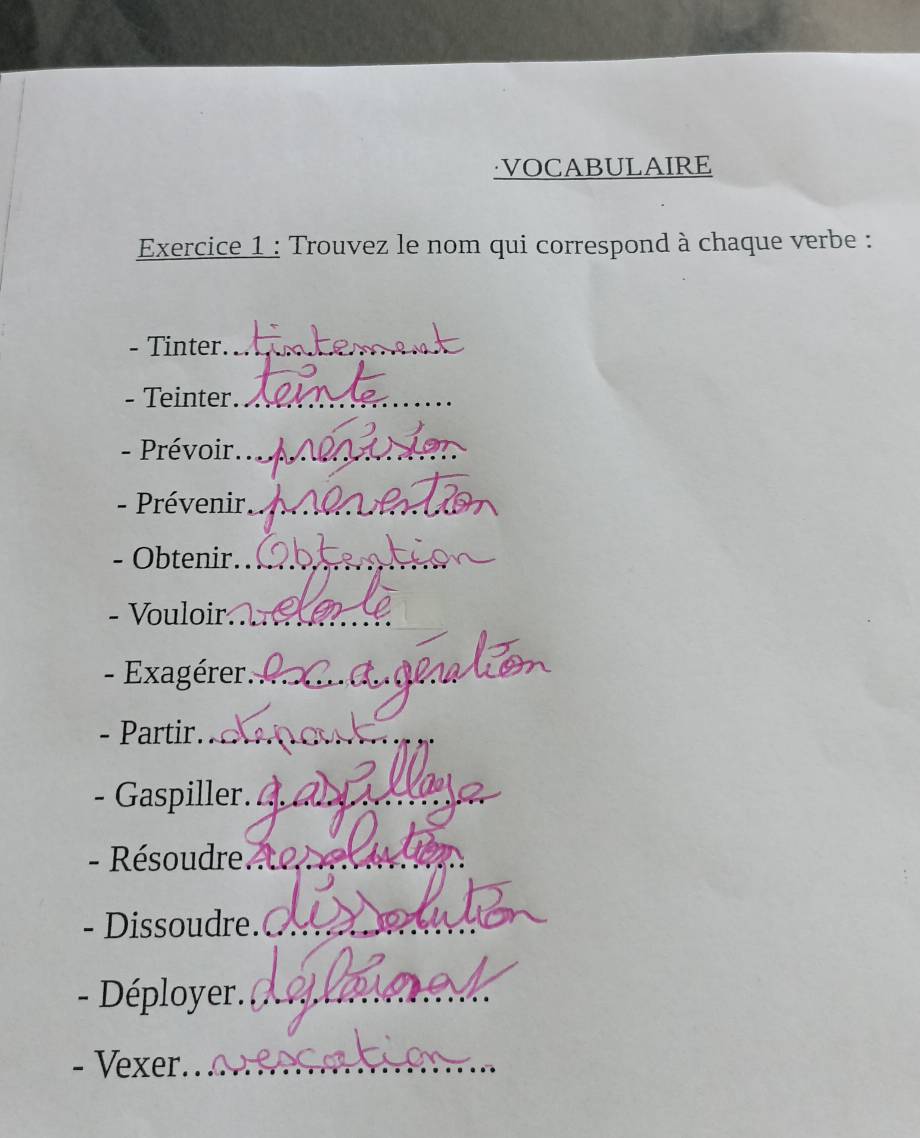 VOCABULAIRE
Exercice 1 : Trouvez le nom qui correspond à chaque verbe :
- Tinter...tintement
- Teinter...teinte
- Prévoir...prévision
- Prévenir...prévention
- Obtenir...Obtention
- Vouloir...volonté
- Exagérer...exagération
- Partir...départ
- Gaspiller...gaspillage
- Résoudre...résolution
- Dissoudre...dissolution
- Déployer...
- Vexer...vexation